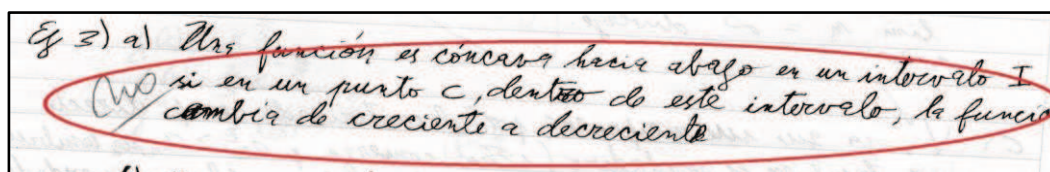 Ej 3) a) Una función es cóncava hacia abajo en un intervalo I
no si en un punto c, dentro de este intervalo, la funció
cambia de creciente a decreciente